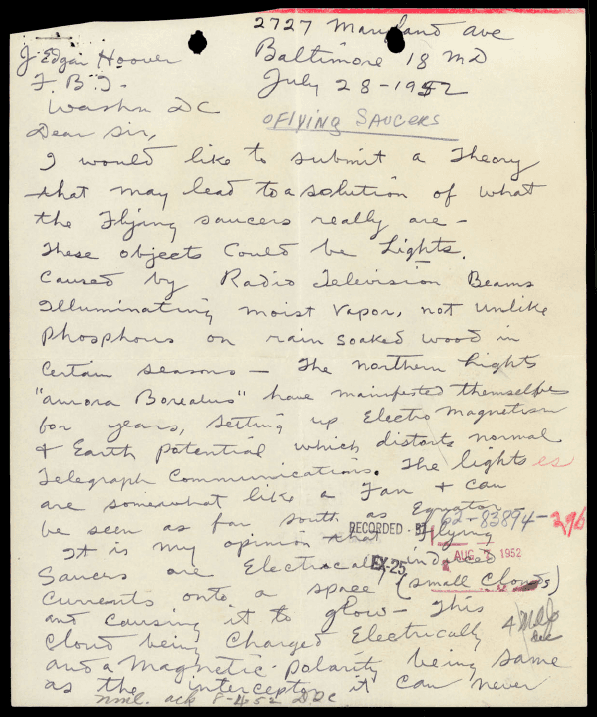 2727 Maryland Ave
J Edgar Hoover
Baltimore 18 MD
F.B.I.
July 28-1952
Washn DC
Dear Sir,
FLYING SAUCERS
I would like to submit a Theory
that may lead to a solution of what
the Flying saucers really are -
These objects Could be Lights.
Caused by Radio Television Beams
Illuminating moist vapor, not unlike
Phosphorus on rain soaked wood in
Certain seasons - The northern Lights
"aurora Borealus" have manifested themselfes
for years, setting up Electro Magnetism
& Earth potential which distorts normal
Telegraph Communications. The lights
are somewhat like a Fan & can
be seen as far south as Equator -
62-83894-296
RECORDED - 57
It is my opinion that Flying
AUG 1952
Saucers are Electrocally induced
EX-25
Currents onto a space (small Clouds)
and causing it to glow - This
Cloud being Charged Electrically
and a Magnetic-polarity being same
as the interceptor it can never
ack 8-4-52